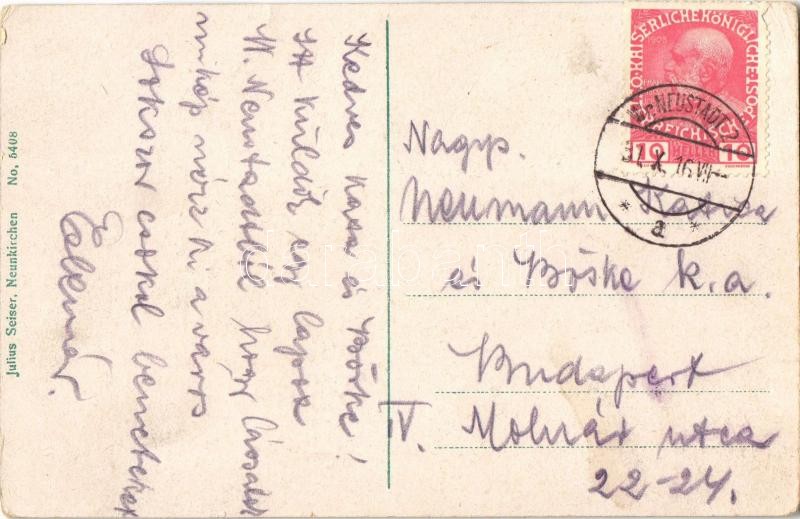 Kedves Kasa és Böske!
Itt küldök egy lapot
W. Neustadtból hogy lássátok
mikép néz ki a város
Sokszor csókol benneteket
Julius Seiser, Neunkirchen No. 5408
KAISERLICHE KÖNIGLICHE
1908
10 HELLER 10
WR NEUSTADT 2
a
Nagys.
Neumann
és Böske k.a.
Budapest
IV. Molnár utca
22-24.
darabanth